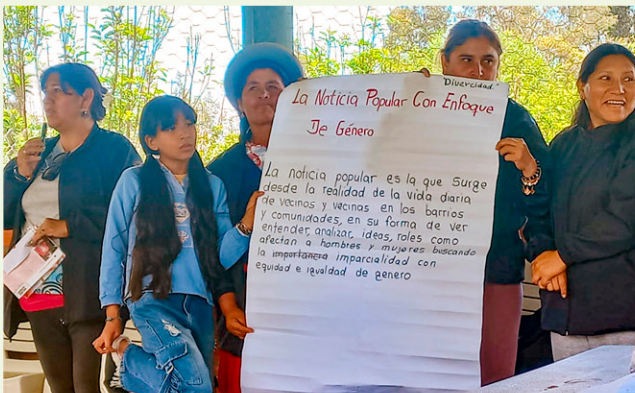 "Divercidad"
La Noticia Popular Con Enfoque
De Género
La noticia popular es la que Surge
desde la realidad de la vida diaria
de vecinos y vecinas en los barrios
y comunidades, en su forma de ver
entender, analizar, ideas, roles como
afectan a hombres y mujeres buscando
la importanera imparcialidad con
equidad e igualdad de genero